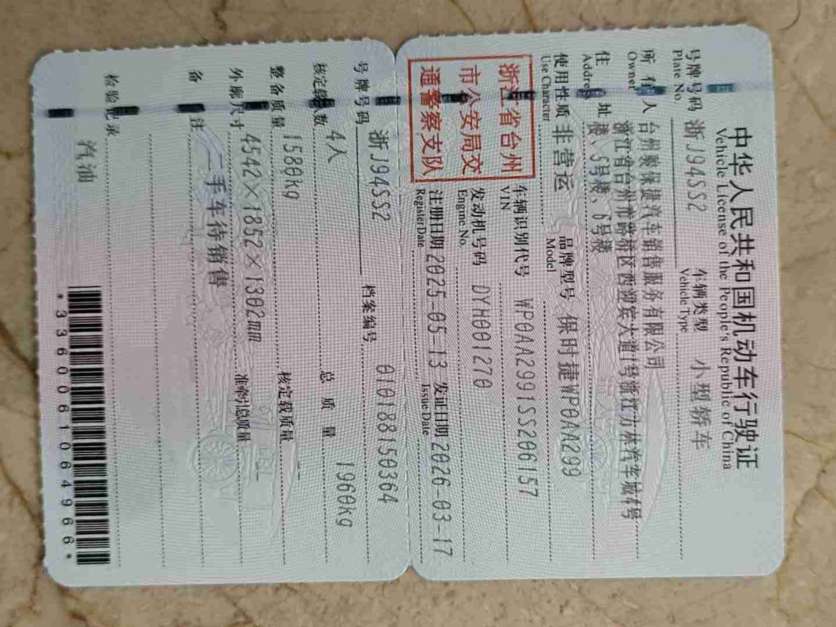 中华人民共和国机动车行驶证
Vehicle License of the People's Republic of China
号牌号码 浙J94SS2 车辆类型 小型轿车
Plate No. Vehicle Type
所有人 台州骏保捷汽车销售服务有限公司
Owner
住址 浙江省台州市路桥区西迎宾大道1号浙江方林汽车城4号
Address 楼、5号楼、6号楼
使用性质 非营运 品牌型号 保时捷WP0AA299
Use Character Model
浙江省台州
市公安局交
通警察支队
车辆识别代号 WP0AA2991SS206157
VIN
发动机号码 DYH001270
Engine No.
注册日期 2025-05-13 发证日期 2026-03-17
Register Date Issue Date
号牌号码 浙J94SS2 档案编号 010188150364
核定载人数 4人 总质量 1960kg
整备质量 1580kg 核定载质量 --
外廓尺寸 4542×1852×1302mm 准牵引总质量 --
备注 二手车待销售
检验记录 汽油
*3360061064966*